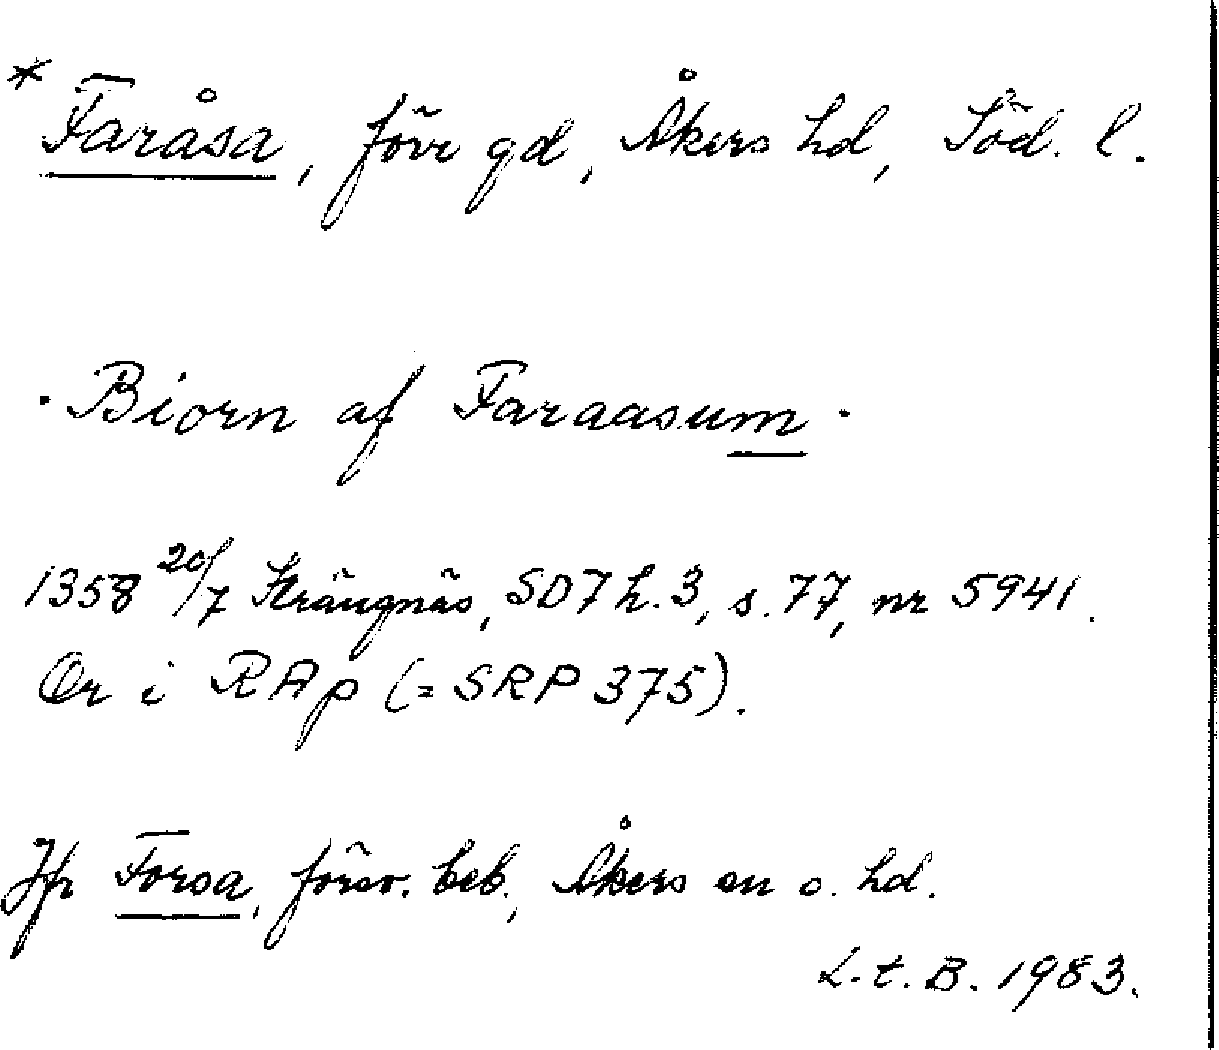 * Faråsa, förr gd, Åkers hd, Söd. l.
· Biorn af Faraasum ·
1358 20/7 Strängnäs, SD7 h. 3, s. 77, nr 5941.
Or i RAp (= SRP 375).
Jfr Forsa, försv. beb., Åkers sn o. hd.
L.t.B. 1983.